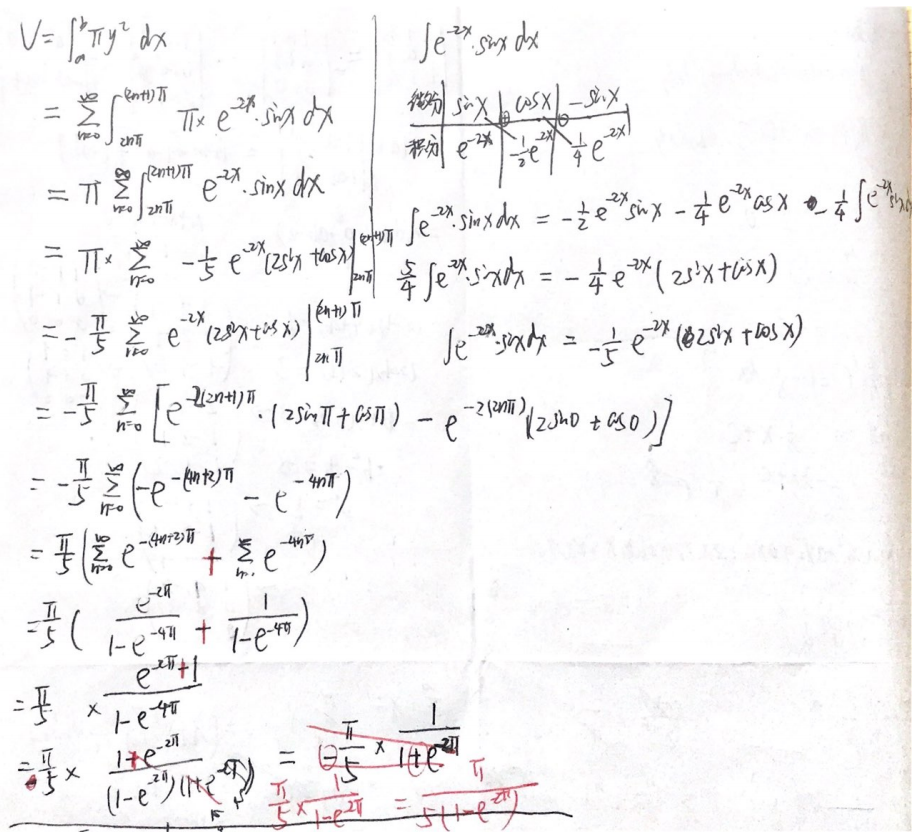 V = ∫_a^b πy² dx
= Σ_{n=0}^∞ ∫_{2nπ}^{(2n+1)π} π × e^{-2x}·sinx dx
= π Σ_{n=0}^∞ ∫_{2nπ}^{(2n+1)π} e^{-2x}·sinx dx
= π × Σ_{n=0}^∞ -1/5 e^{-2x}(2sinx+cosx)|_{2nπ}^{(2n+1)π}
= -π/5 Σ_{n=0}^∞ e^{-2x}(2sinx+cosx)|_{2nπ}^{(2n+1)π}
= -π/5 Σ_{n=0}^∞ [e^{-2(2n+1)π}·(2sinπ+cosπ) - e^{-2(2nπ)}(2sin0+cos0)]
= -π/5 Σ_{n=0}^∞ (-e^{-(4n+2)π} - e^{-4nπ})
= π/5 (Σ_{n=0}^∞ e^{-(4n+2)π} + Σ e^{-4nπ})
= π/5 ( e^{-2π}/(1-e^{-4π}) + 1/(1-e^{-4π}) )
= π/5 × (e^{-2π}+1)/(1-e^{-4π})
= π/5 × (1+e^{-2π})/((1-e^{-2π})(1+e^{-2π})) = -π/5 × 1/(1+e^{-2π})
π/5 × 1/(1-e^{-2π}) = π/(5(1-e^{-2π}))
∫e^{-2x}·sinx dx
微分 | sinx | ⊕ cosx | ⊖ -sinx
积分 | e^{-2x} | -1/2 e^{-2x} | 1/4 e^{-2x}
∫e^{-2x}·sinx dx = -1/2 e^{-2x} sinx - 1/4 e^{-2x} cosx - 1/4 ∫e^{-2x} sinx dx
5/4 ∫e^{-2x}·sinx dx = -1/4 e^{-2x}(2sinx+cosx)
∫e^{-2x}·sinx dx = -1/5 e^{-2x}(2sinx+cosx)